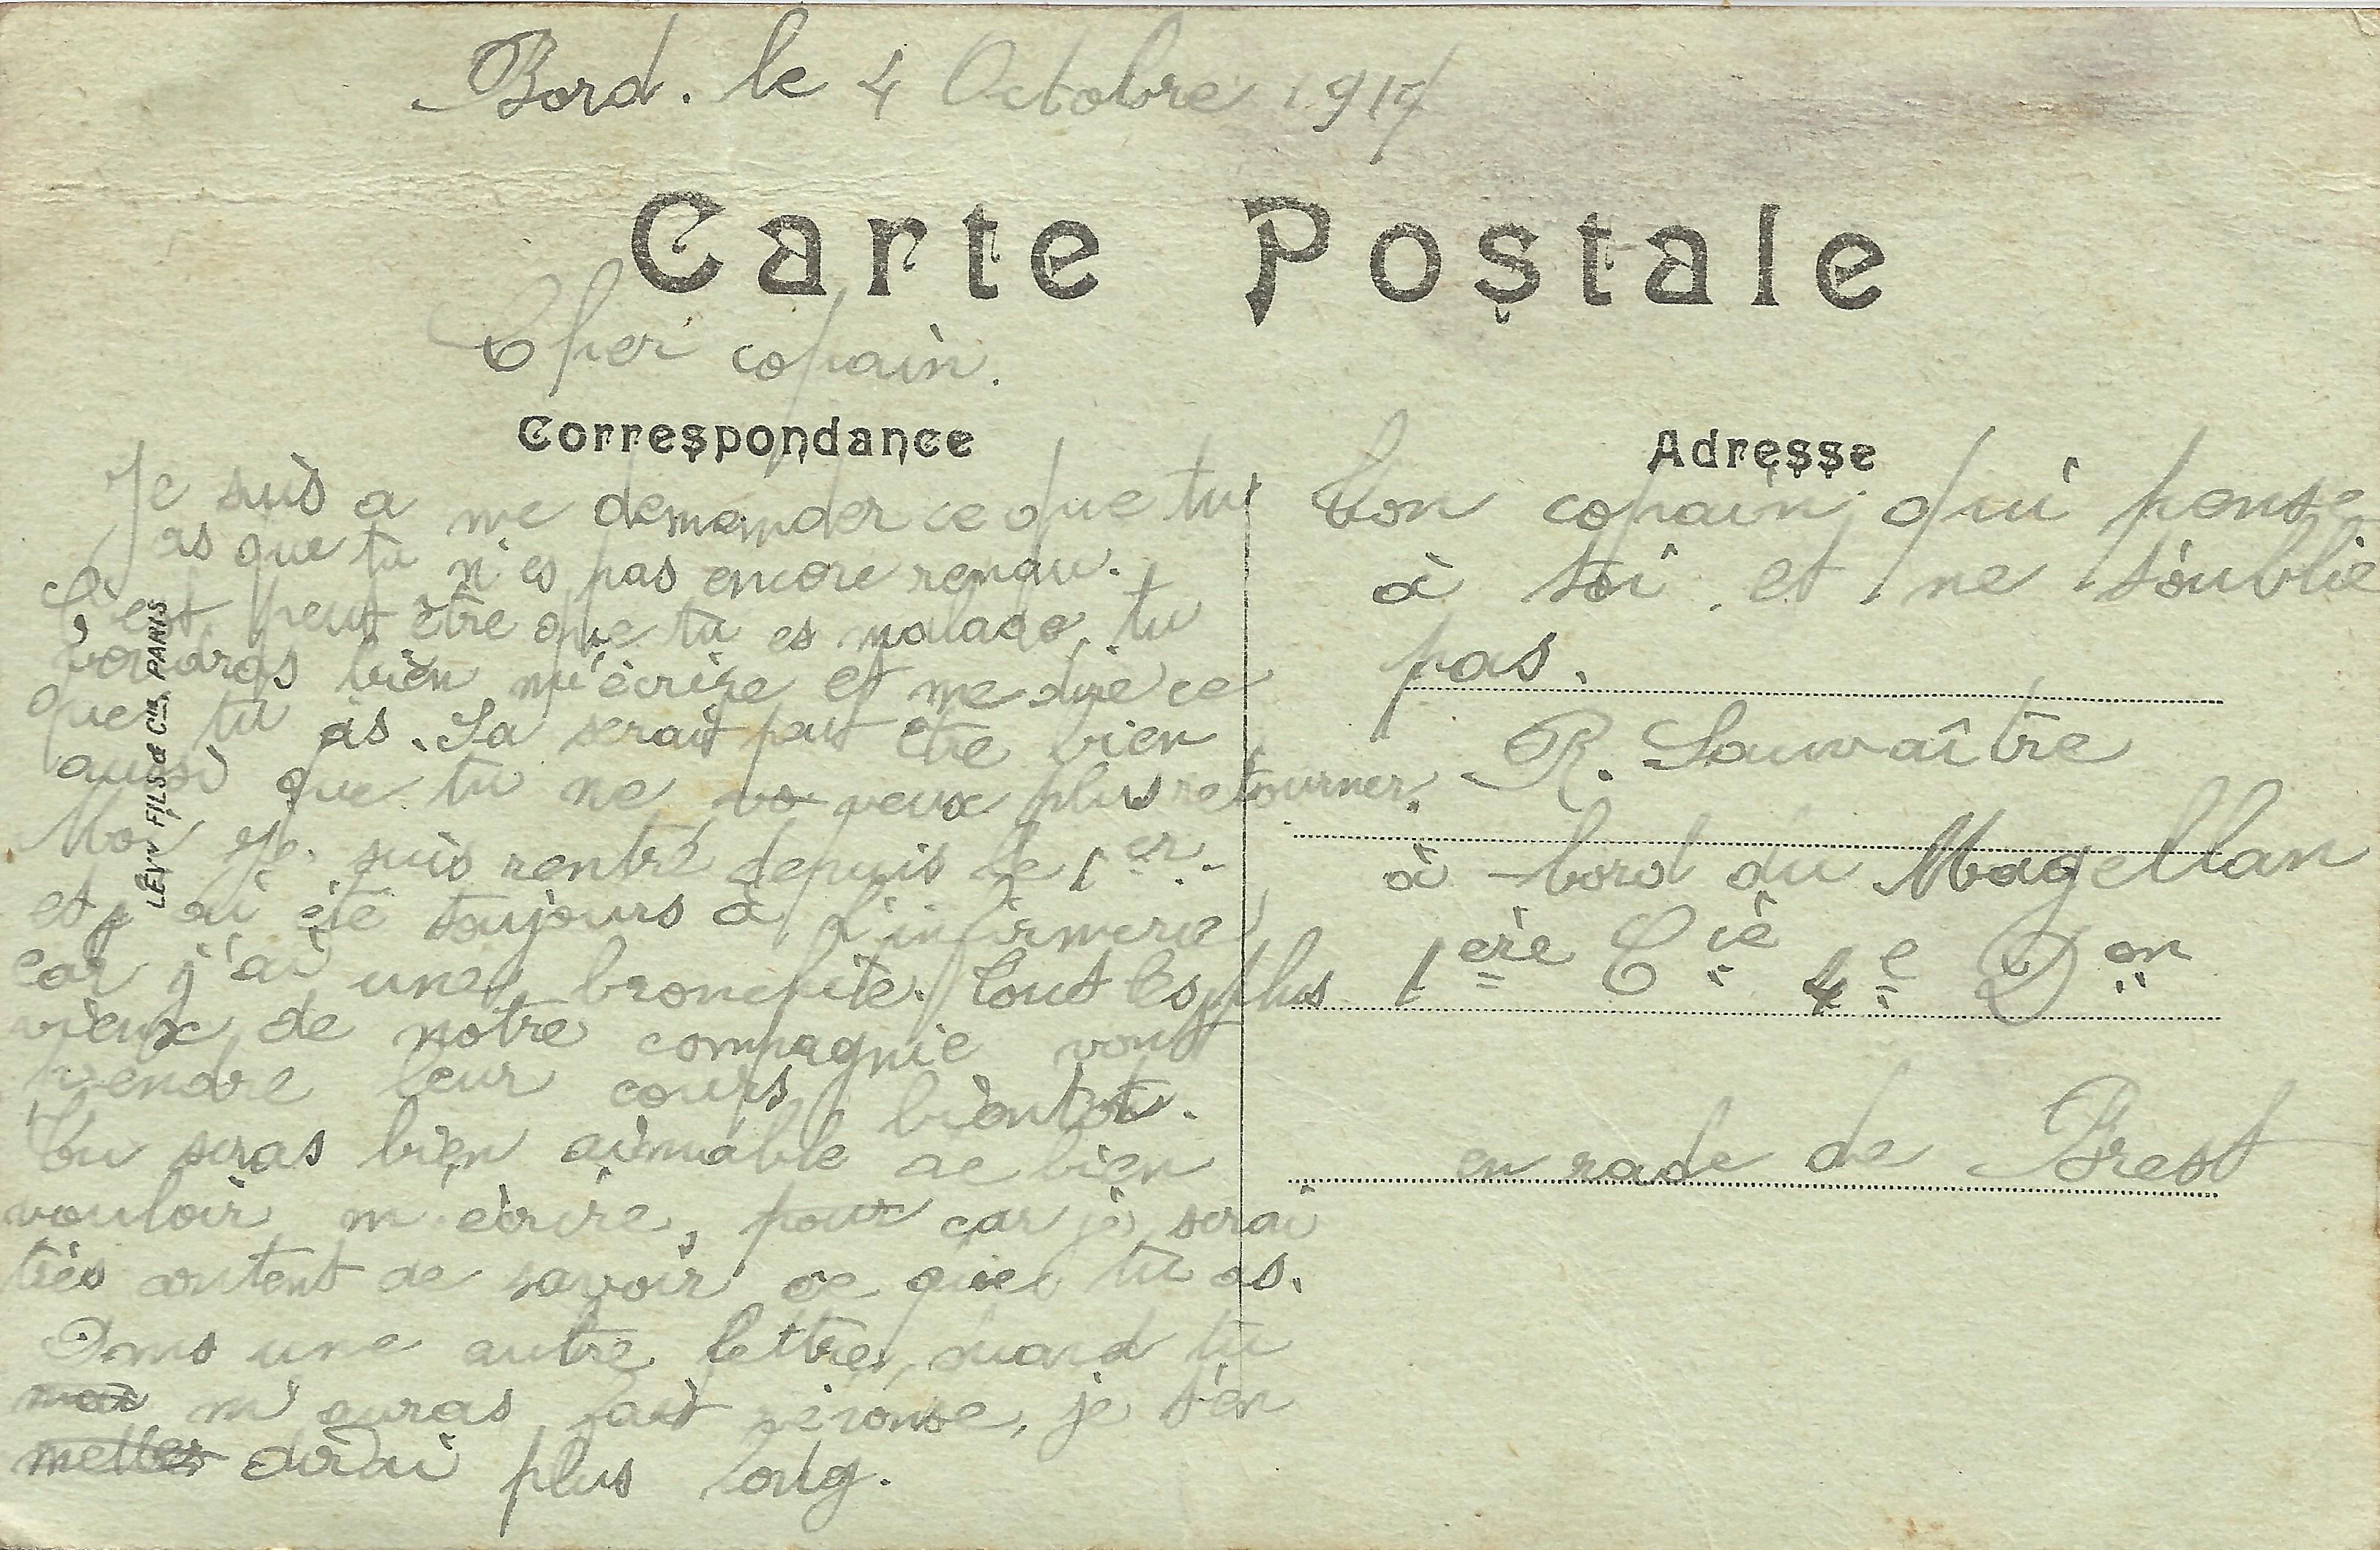 Bord. le 4 Octobre 1917
Carte Postale
Cher copain.
Correspondance
Je suis a me demander ce que tu
as que tu n'es pas encore rendu.
C'est peut être que tu es malade, tu
voudras bien m'écrire et me dire ce
que tu as. Sa serait peut être bien
aussi que tu ne vo veux plus retourner.
Moi je suis rentré depuis le 1er.
et j'ai été toujours à l'infirmerie
car j'ai une bronchite. Tout les plus
vieux de notre compagnie vont
rendre leur cours bientôt.
Tu seras bien aimable de bien
vouloir m'écrire, pour car je serai
très content de savoir ce que tu as.
Dans une autre lettre, quand tu
m'auras fait réponse, je t'en
dirai plus long.
LEVY FILS & Cie, PARIS
Adresse
Ton copain qui pense
à toi et ne t'oublie
pas.
R.
à bord du Magellan
1ère Cie 4e Don
en rade de Brest